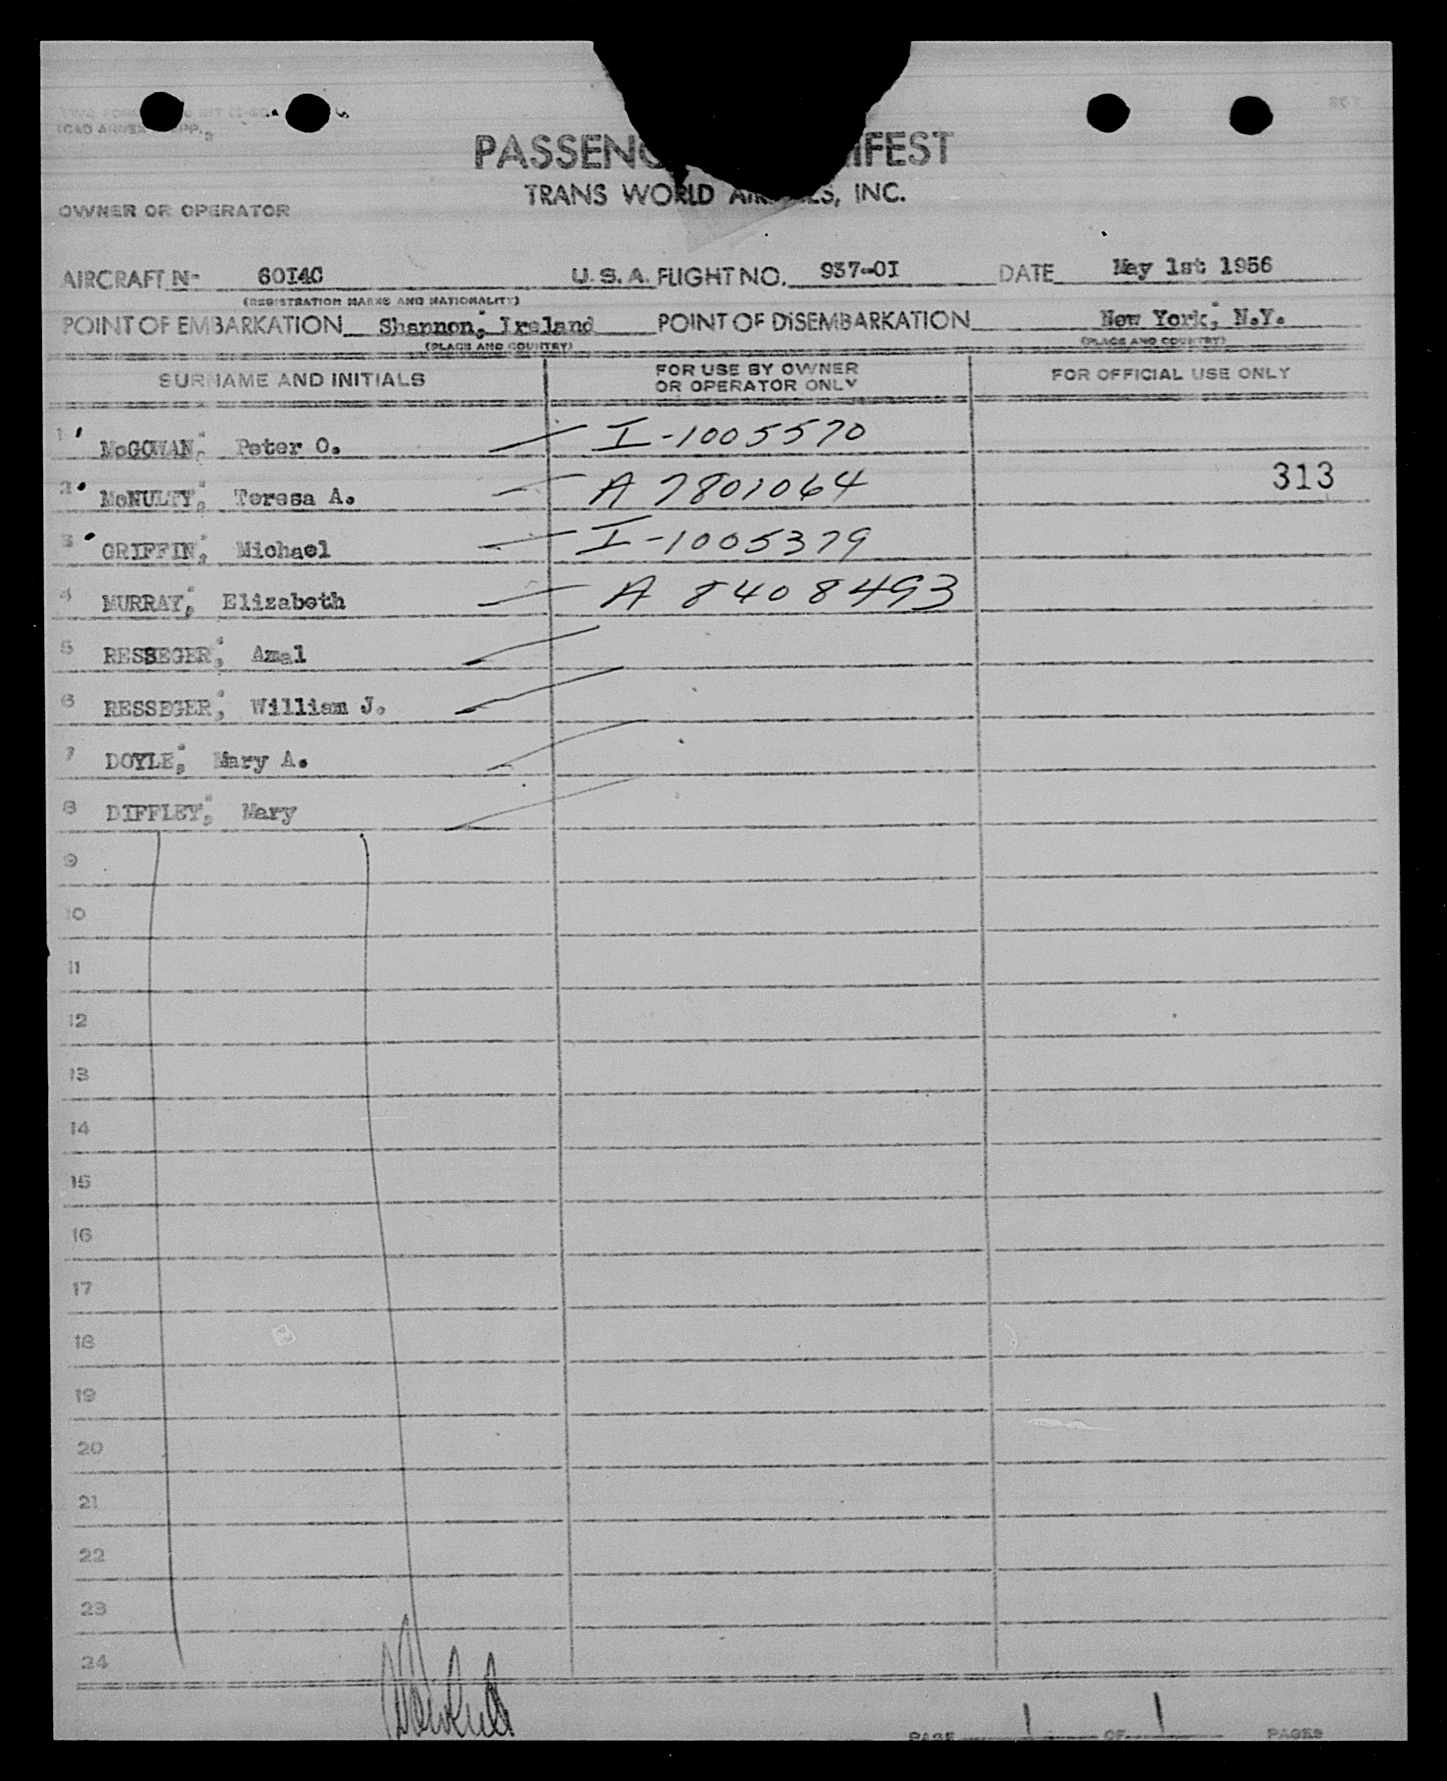 ICAO ANNEX PP.
PASSENG IFEST
TRANS WORLD AIR ES, INC.
OWNER OR OPERATOR
AIRCRAFT Nº 60I4C U. S. A. FLIGHT NO. 937-0I DATE May 1st 1956
(REGISTRATION MARKS AND NATIONALITY)
POINT OF EMBARKATION Shannon, Ireland POINT OF DISEMBARKATION New York, N.Y.
(PLACE AND COUNTRY) (PLACE AND COUNTRY)
SURNAME AND INITIALS FOR USE BY OWNER OR OPERATOR ONLY FOR OFFICIAL USE ONLY
1 McGOWAN, Peter O. I-1005570
313
2 McNULTY, Teresa A. A 7801064
3 GRIFFIN, Michael I-1005379
4 MURRAY, Elizabeth A 8408493
5 RESSEGER, Azal
6 RESSEGER, William J.
7 DOYLE, Mary A.
8 DIFFLEY, Mary
9
10
11
12
13
14
15
16
17
18
19
20
21
22
23
24
PAGE 1 OF 1 PAGES